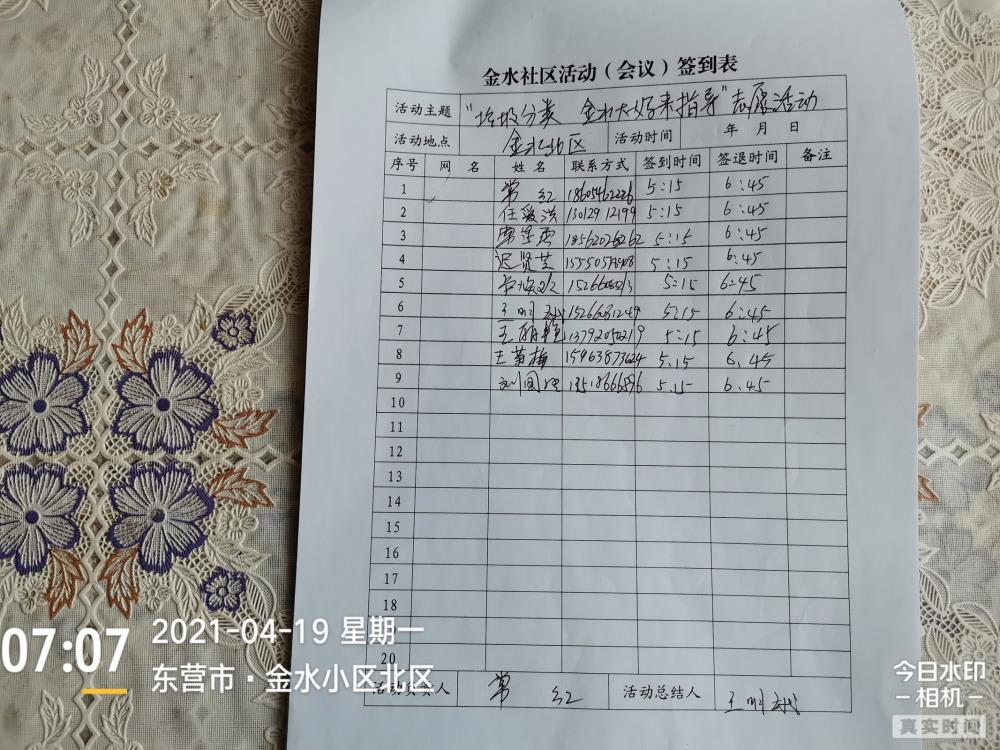 金水社区活动（会议）签到表
活动主题 "垃圾分类 金水大嫂来指导"志愿活动
活动地点 金水北区 活动时间 年 月 日
序号 网 名 姓 名 联系方式 签到时间 签退时间 备注
1 常 红 18605462226 5:15 6:45
2 任爱洪 13012912199 5:15 6:45
3 18562026262 5:15 6:45
4 迟贤芝 5:15 6:45
5 5:15 6:45
6 王明 15266281249 5:15 6:45
7 王丽艳 13792050219 5:15 6:45
8 王菊梅 15963873624 5.15 6.45
9 13518666596 5.15 6.45
10
11
12
13
14
15
16
17
18
19
20
活动负责人 常 红 活动总结人 王明
07:07
2021-04-19 星期一
东营市·金水小区北区
今日水印
－相机－
真实时间